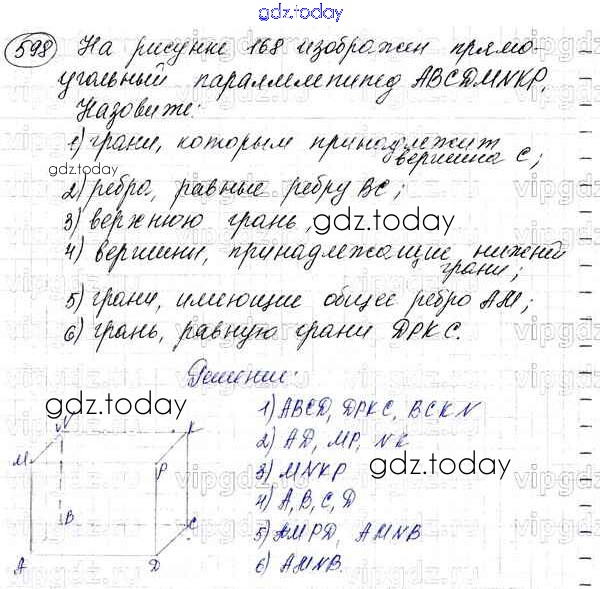 gdz.today
598 На рисунке 168 изображён прямо-
угольный параллелепипед ABCDMNKP.
Назовите:
1) грани, которым принадлежит
вершина C;
gdz.today
2) ребра, равные ребру BC;
3) верхнюю грань,
gdz.today
4) вершины, принадлежащие нижней
грани;
5) грани, имеющие общее ребро AM;
6) грань, равную грани DPKC.
Решение:
gdz.today
1) ABCD, DPKC, BCKN
2) AD, MP, NK
3) MNKP
gdz.today
4) A, B, C, D
5) AMPD, AMNB
6) AMNB.
N
K
M
P
B
C
A
D
vipgdz